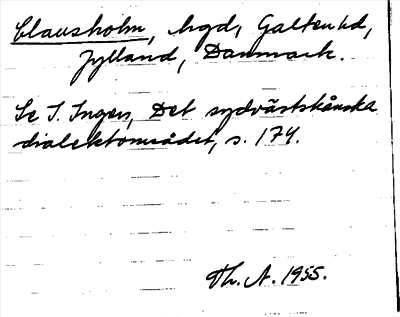 Clausholm, hgd, Galten hd,
Jylland, Danmark.
Se S. Ingers, Det sydvästskånska
dialektområdet, s. 174.
Th. A. 1955.